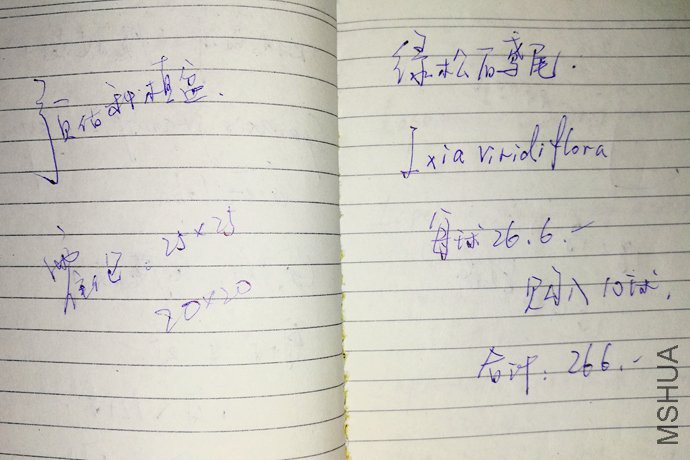 自播种植盆
25×25
20×20
绿松石鸢尾.
Ixia viridiflora
每球26.6.-
购入10球.
合计:266.-
MSHUA